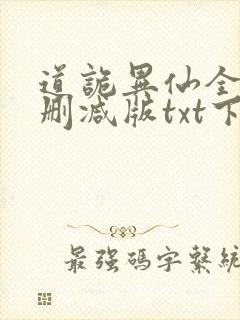 道詭異仙全
刪減版txt下
最強碼字繫統